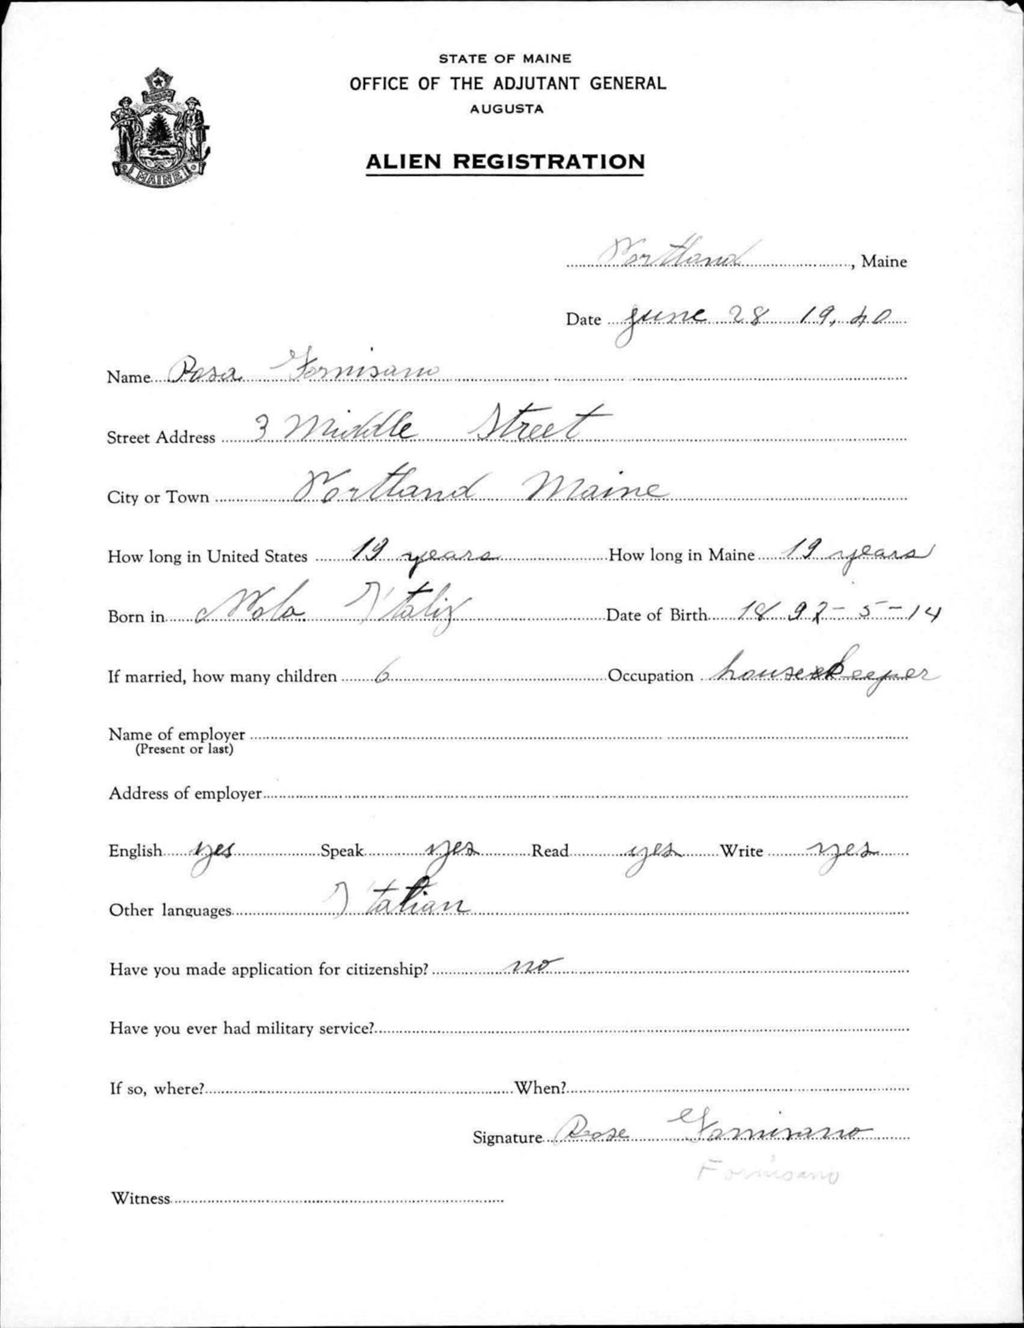 STATE OF MAINE
OFFICE OF THE ADJUTANT GENERAL
AUGUSTA
ALIEN REGISTRATION
MAINE
Portland, Maine
Date June 28 19,40
Name Rosa Fornisano
Street Address 3 Middle Street
City or Town Portland Maine
How long in United States 19 years How long in Maine 19 years
Born in Nola Italy Date of Birth 1892-5-14
If married, how many children 6 Occupation housekeeper
Name of employer
(Present or last)
Address of employer
English yes Speak yes Read yes Write yes
Other languages Italian
Have you made application for citizenship? no
Have you ever had military service?
If so, where? When?
Signature Rose Fornisano
Fornisano
Witness